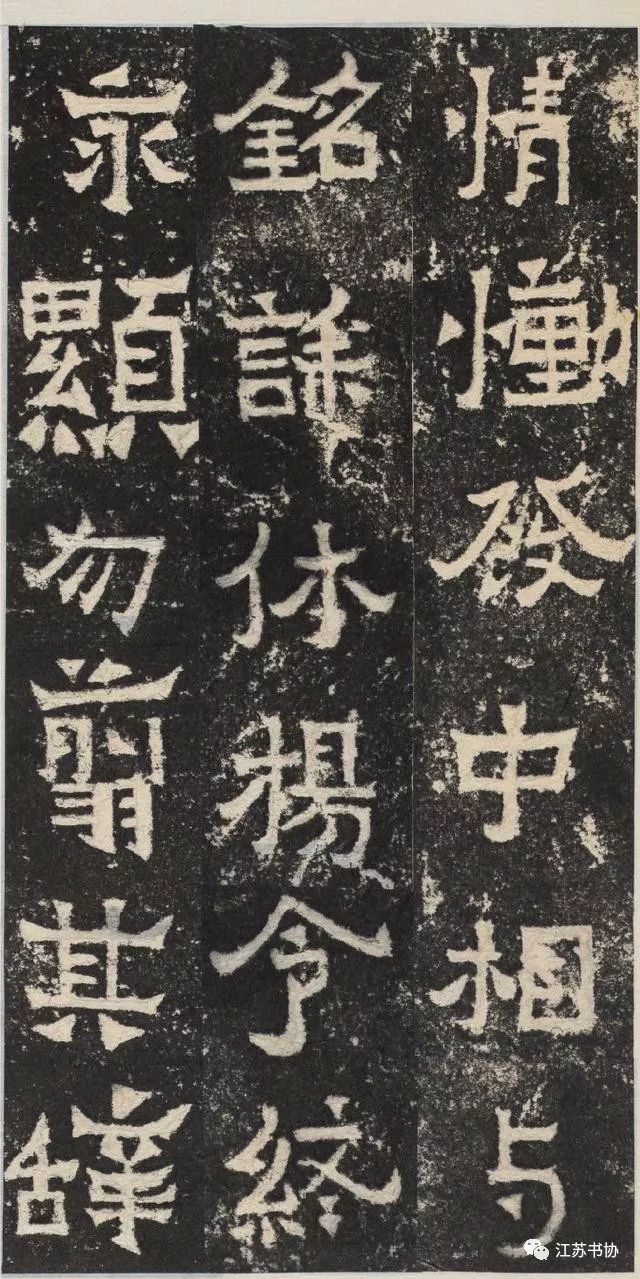 情慟發中相与
銘誄休揚令終
永顯勿翦其辞
江苏书协